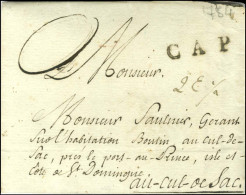 784
CAP
Monsieur
Monsieur Saulnier, Gerant
Sur l'habitation Boutin au cul-de-
Sac, près le port-au-Prince, isle et
Côte de St Domingue
au-cul-de-Sac